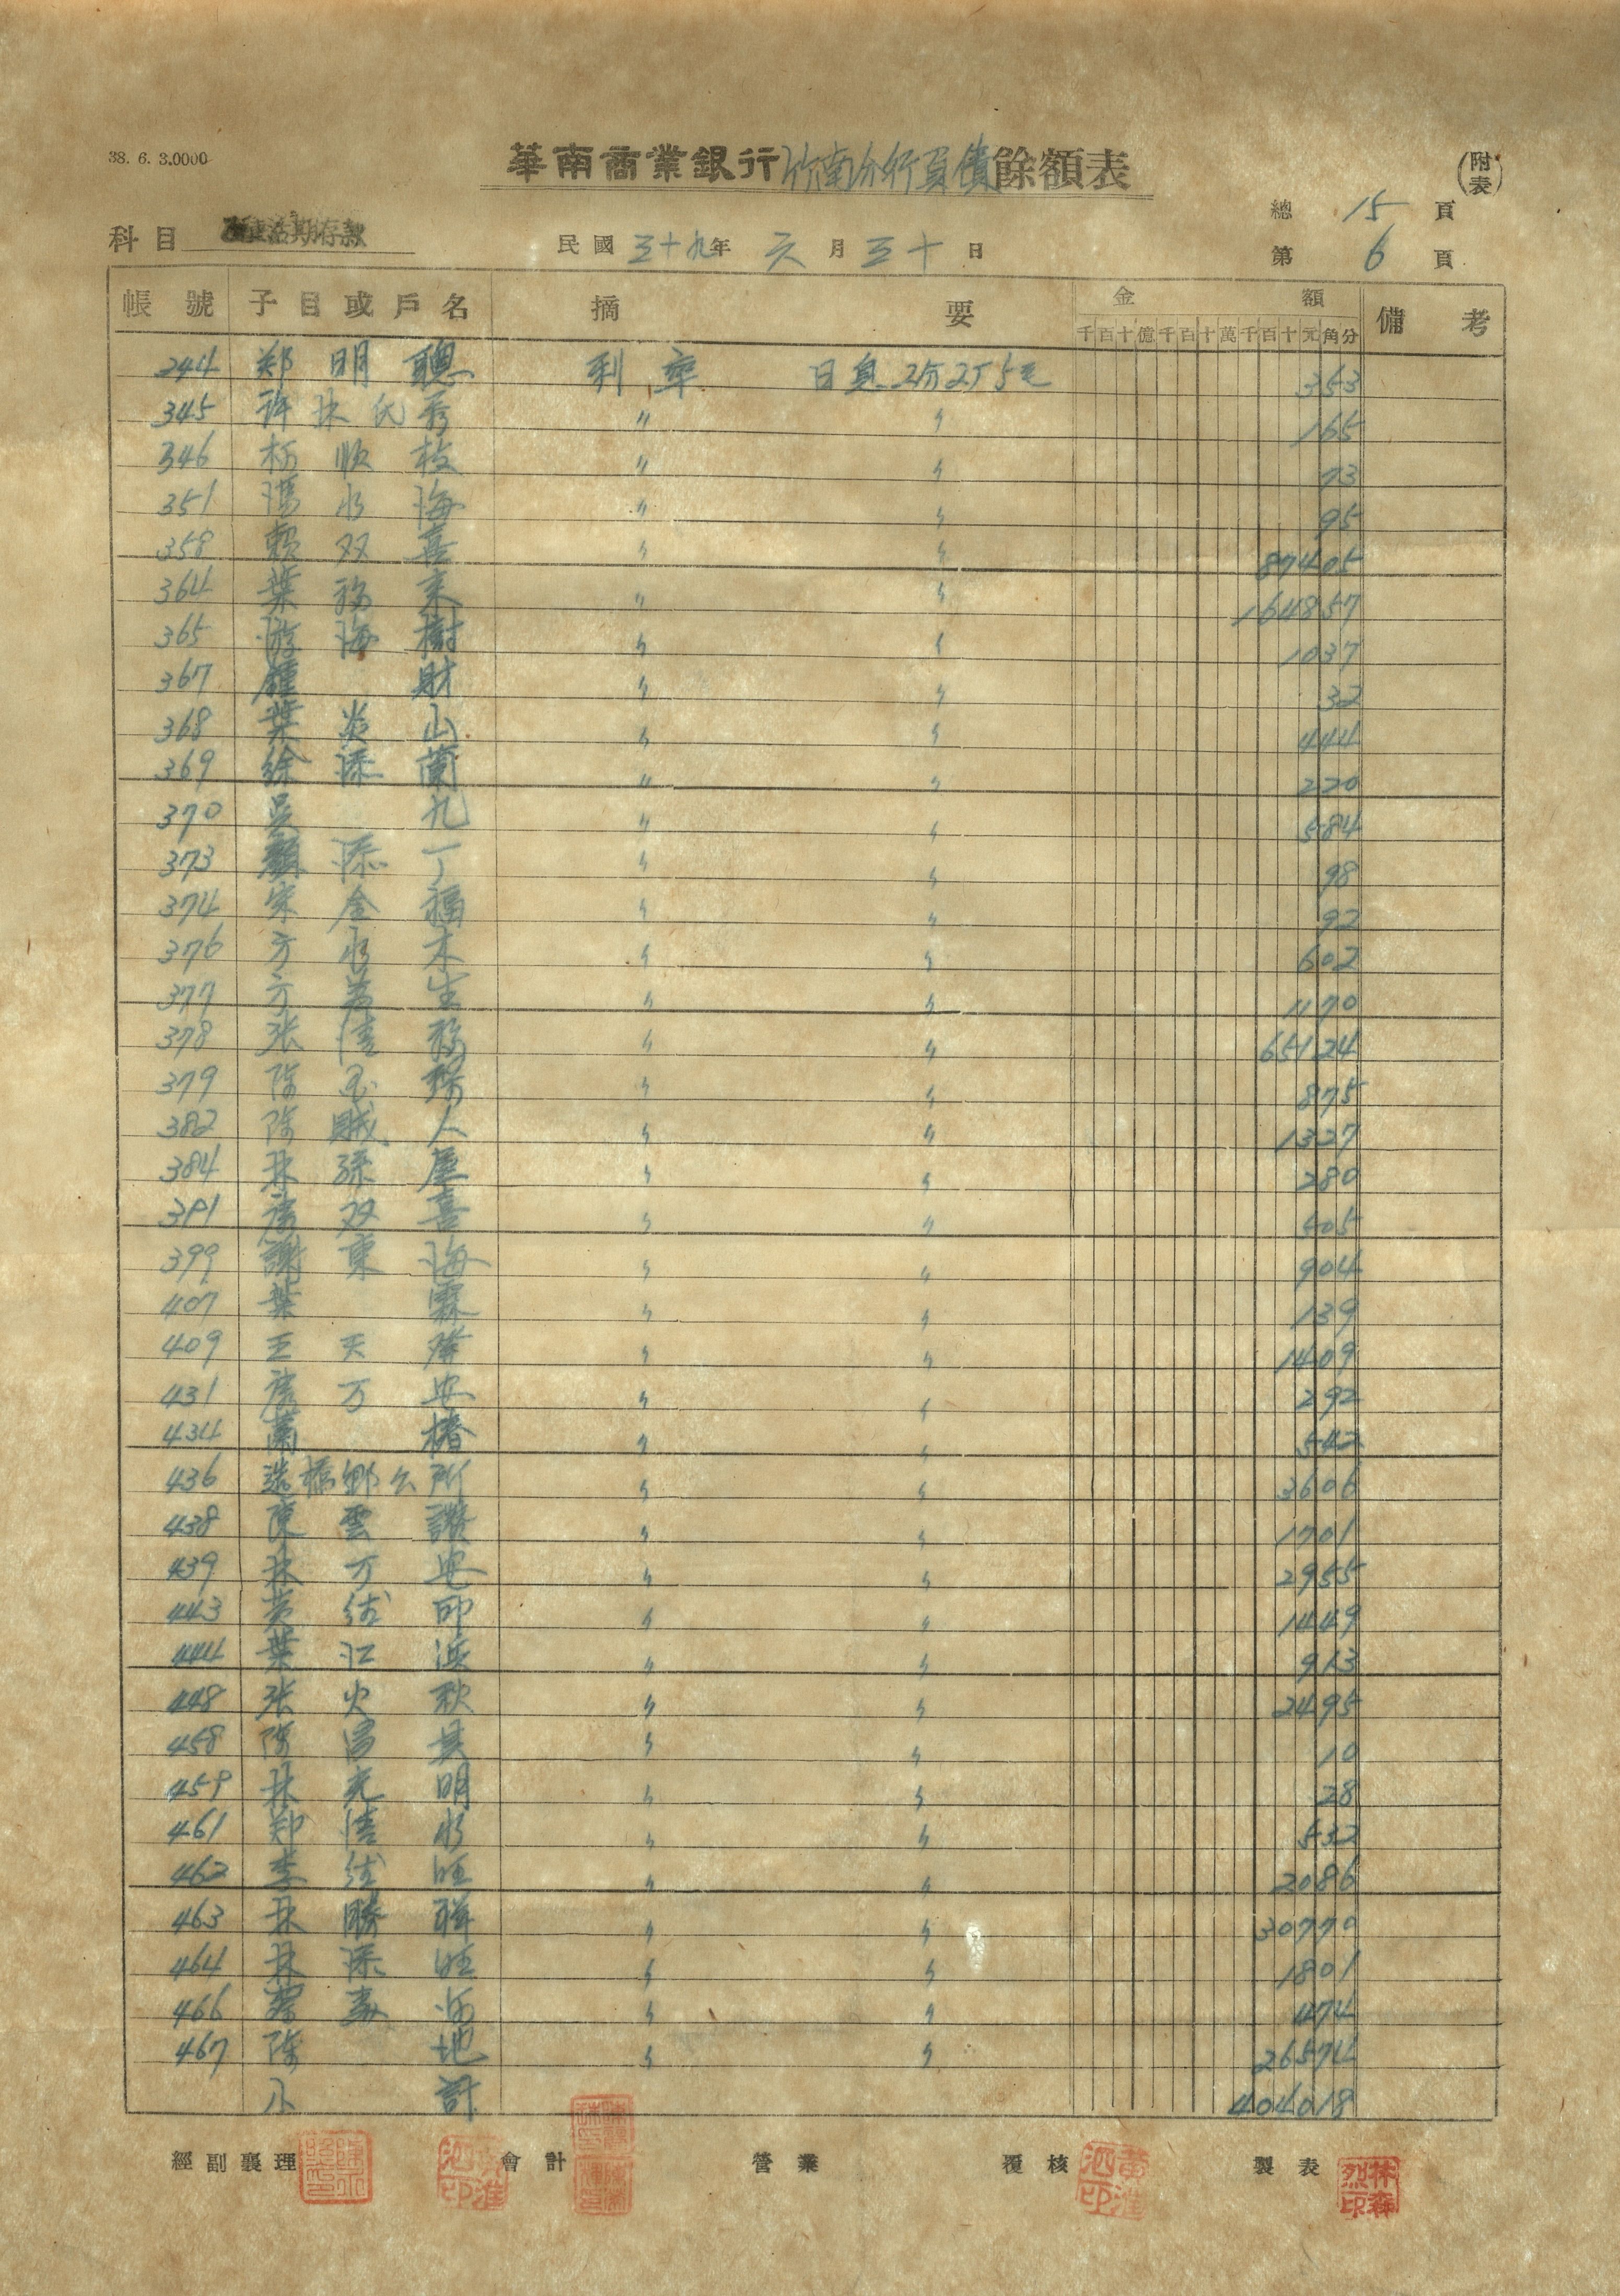 38. 6. 3.0000
華南商業銀行竹南分行負債餘額表
(附表)
總 15 頁
科目 活期存款
民國 三十九年 六月 三十日
第 6 頁
帳號 子目或戶名 摘要 金額 備考
千百十億千百十萬千百十元角分
244 郑明聰 利率 日息 353
345 許林氏秀 〃 〃 165
346 順枝 〃 〃 73
351 馮水海 〃 〃 95
358 賴双喜 〃 〃 87405
364 葉 〃 〃 164857
365 游海樹 〃 〃 1037
367 鍾財 〃 〃 32
368 葉炎山 〃 〃 444
369 徐添蘭 〃 〃 220
370 吳九 〃 〃 584
373 顏添丁 〃 〃 98
374 宋金福 〃 〃 92
376 方水木 〃 〃 602
377 方生 〃 〃 1170
378 张清 〃 〃 65124
379 陈 〃 〃 875
382 陈賊人 〃 〃 1327
384 林 〃 〃 280
391 双喜 〃 〃 505
399 謝東海 〃 〃 904
407 葉霖 〃 〃 139
409 王天 〃 〃 1409
431 万安 〃 〃 292
434 椿 〃 〃 542
436 造橋鄉公所 〃 〃 3606
438 陳雲讚 〃 〃 1701
439 林万安 〃 〃 2955
443 黄 〃 〃 1449
444 葉江浜 〃 〃 913
448 张火秋 〃 〃 2495
458 陈 〃 〃 10
459 林充明 〃 〃 28
461 郑清水 〃 〃 532
462 李旺 〃 〃 2086
463 林勝 〃 〃 30770
464 林添旺 〃 〃 1801
466 〃 〃 474
467 陈地 〃 〃 26574
小計 404018
經副襄理 會計 營業 覆核 製表
黃泗淮印 林森烈印